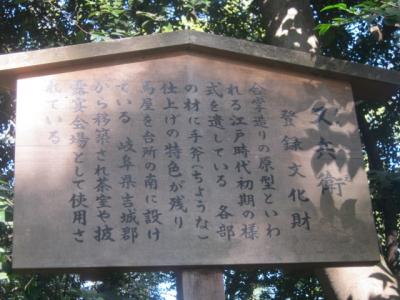 又兵衛
登録文化財
合掌造りの原型といわ
れる江戸時代初期の様
式を遺している 各部
の材に手斧(ちょうな)
仕上げの特色が残り
馬屋を台所の南に設け
ている 岐阜県吉城郡
から移築され茶室や披
露宴会場として使用さ
れている